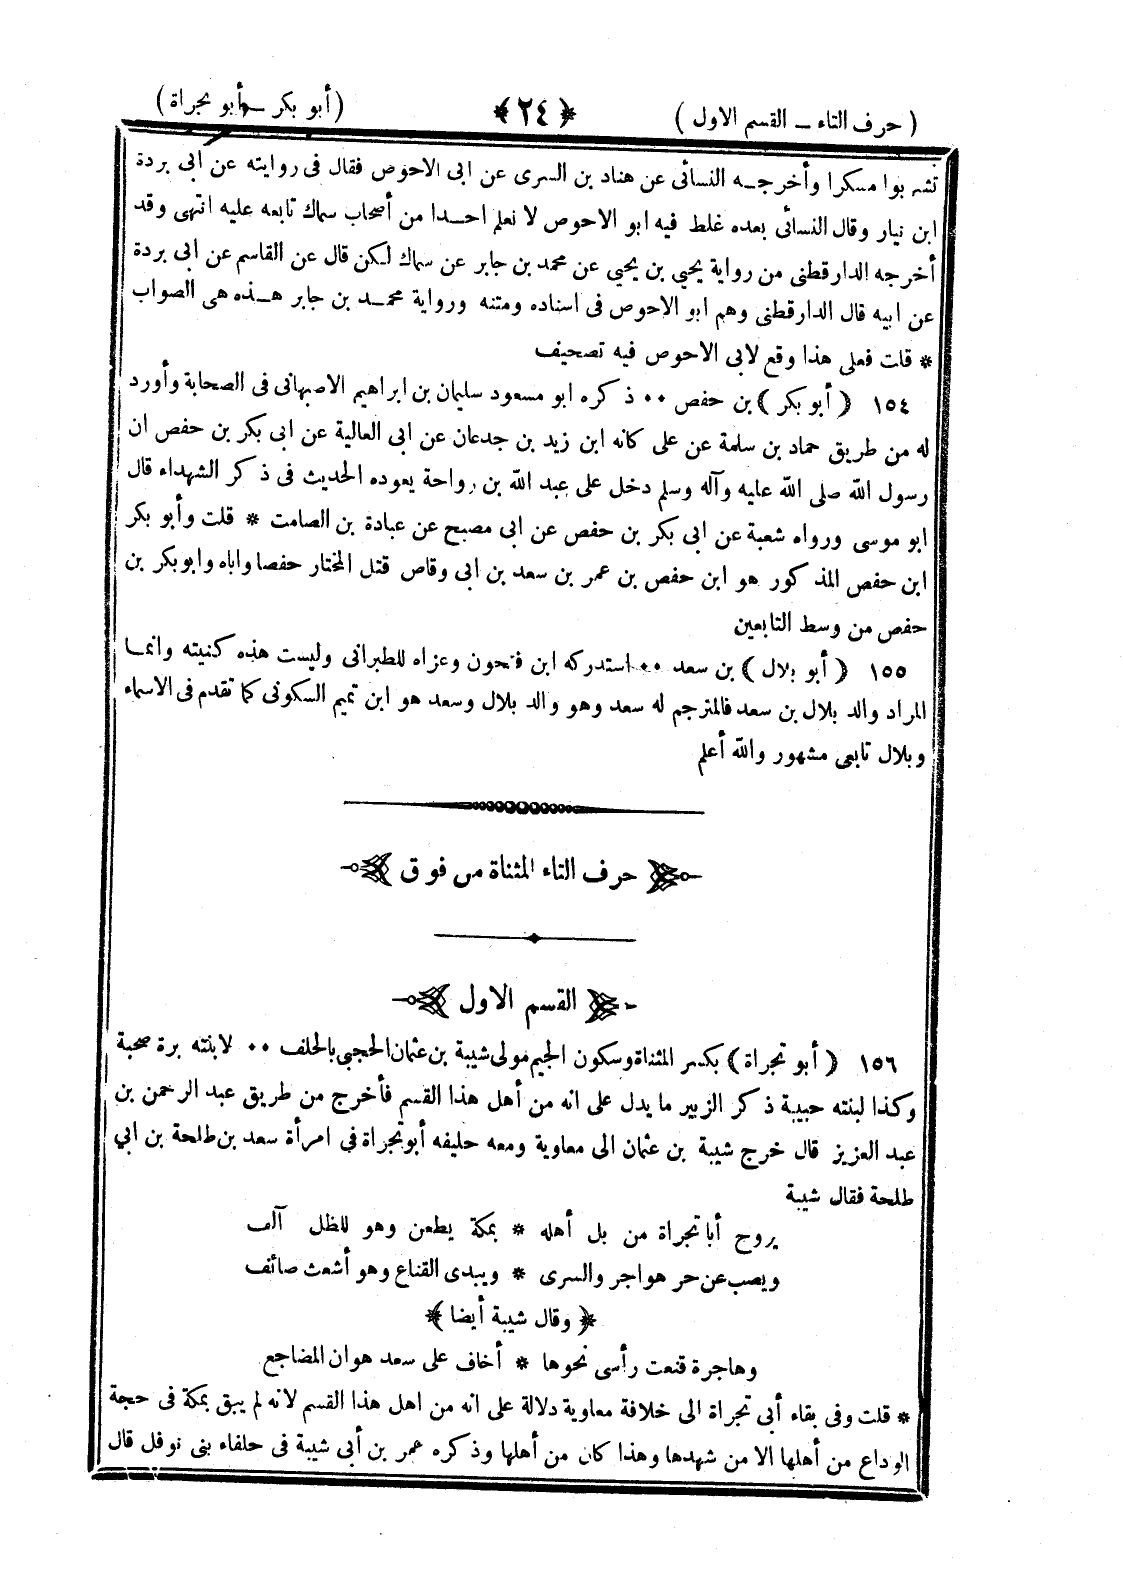 ( حرف التاء ــ القسم الاول )
﴿ ٢٤ ﴾
( أبو بكر ــ أبو تجراة )
تشربوا مسكرا وأخرجــه النسائى عن هناد بن السرى عن ابى الاحوص فقال فى روايته عن ابى بردة
ابن نيار وقال النسائى بعده غلط فيه ابو الاحوص لا نعلم احــدا من أصحاب سماك تابعه عليه انتهى وقد
أخرجه الدارقطنى من رواية يحيى بن يحيى عن محمد بن جابر عن سماك لكن قال عن القاسم عن ابى بردة
عن ابيه قال الدارقطنى وهم ابو الاحوص فى اسناده ومتنه ورواية محمــد بن جابر هــذه هى الصواب
* قلت فعلى هذا وقع لابى الاحوص فيه تصحيف
١٥٤ ﴿ أبو بكر ﴾ بن حفص ٠٠ ذكره ابو مسعود سليمان بن ابراهيم الاصبهانى فى الصحابة وأورد
له من طريق حماد بن سلمة عن على كانه ابن زيد بن جدعان عن ابى العالية عن ابى بكر بن حفص ان
رسول الله صلى الله عليه وآله وسلم دخل على عبد الله بن رواحة يعوده الحديث فى ذكر الشهداء قال
ابو موسى ورواه شعبة عن ابى بكر بن حفص عن ابى مصبح عن عبادة بن الصامت * قلت وأبو بكر
ابن حفص المذكور هو ابن حفص بن عمر بن سعد بن ابى وقاص قتل المختار حفصا واباه وابوبكر بن
حفص من وسط التابعين
١٥٥ ﴿ أبو بلال ﴾ بن سعد ٠٠ استدركه ابن فتحون وعزاه للطبرانى وليست هذه كنيته وانمـا
المراد والد بلال بن سعد فالمترجم له سعد وهو والد بلال وسعد هو ابن تميم السكونى كما تقدم فى الاسماء
وبلال تابعى مشهور والله أعلم
حرف التاء المثناة من فوق
القسم الاول
١٥٦ ﴿ أبو تجراة ﴾ بكسر المثناة وسكون الجيم مولى شيبة بن عثمان الحجبى بالحلف ٠٠ لابنته برة صحبة
وكذا لبنته حبيبة ذكر الزبير ما يدل على انه من أهل هذا القسم فأخرج من طريق عبد الرحمن بن
عبد العزيز قال خرج شيبة بن عثمان الى معاوية ومعه حليفه أبو تجراة فى امرأة سعد بن طلحة بن ابي
طلحة فقال شيبة
يروح أبا تجراة من بل أهله * بمكة يطعن وهو للظل آلف
ويصب عن حر هواجر والسرى * ويبدى القناع وهو أشعث صائف
﴿ وقال شيبة أيضا ﴾
وهاجرة قنعت رأسى نحوها * أخاف على سعد هوان المضاجع
* قلت وفى بقاء أبى تجراة الى خلافة معاوية دلالة على انه من اهل هذا القسم لانه لم يبق بمكة فى حجة
الوداع من أهلها الا من شهدها وهذا كان من أهلها وذكره عمر بن أبى شيبة فى حلفاء بنى نوفل قال